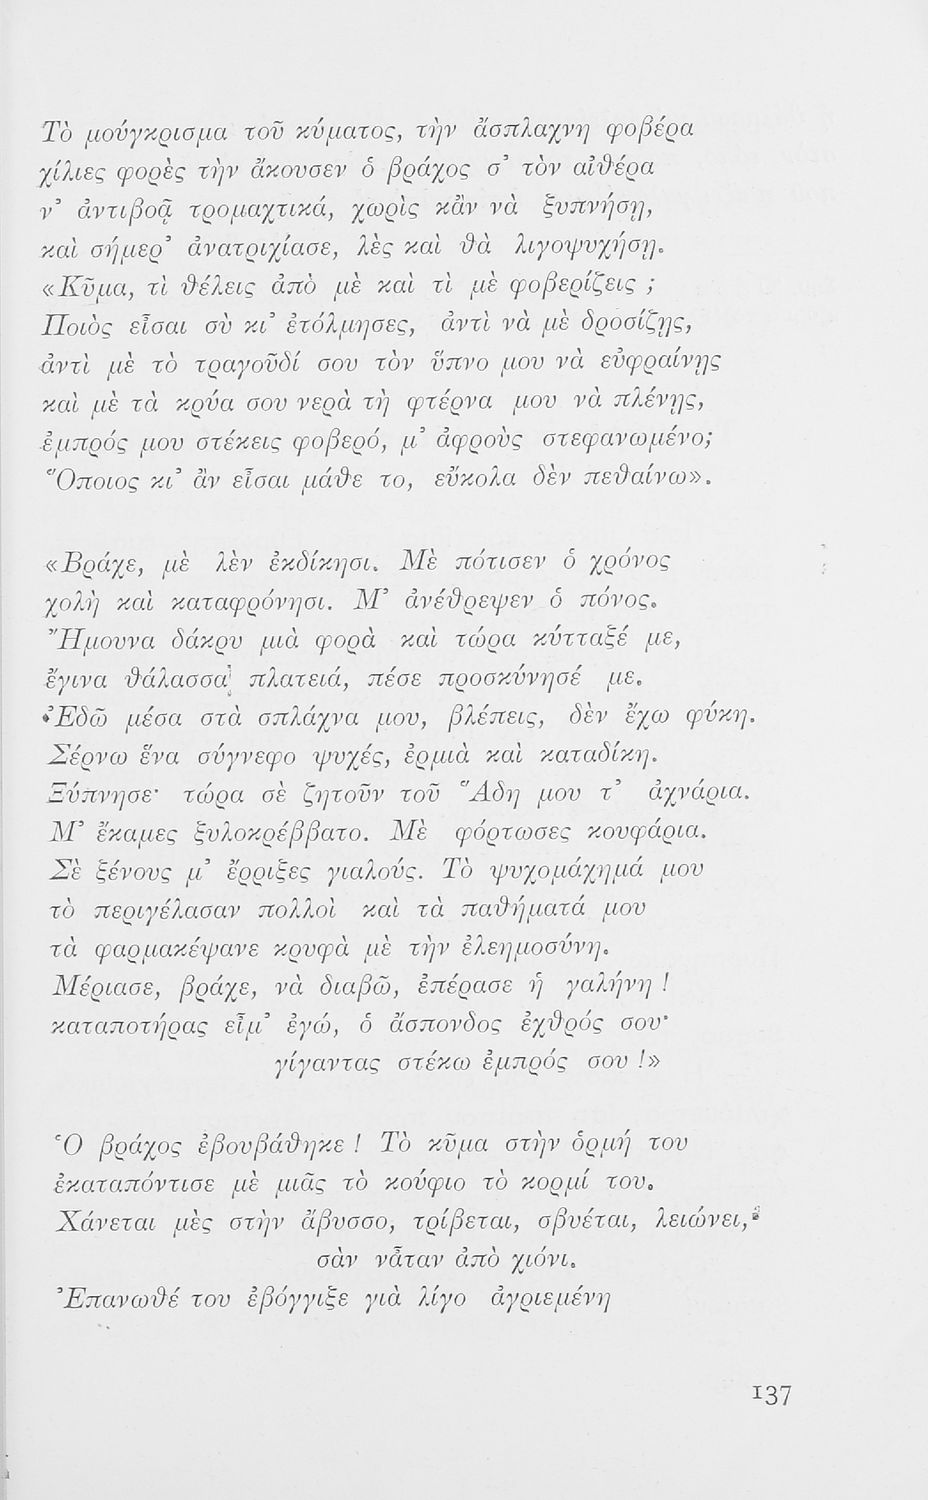 Τὸ μούγκρισμα τοῦ κύματος, τὴν ἄσπλαχνη φοβέρα
χίλιες φορὲς τὴν ἄκουσεν ὁ βράχος σ᾿ τὸν αἰθέρα
ν᾿ ἀντιβοᾷ τρομαχτικά, χωρὶς κἂν νὰ ξυπνήσῃ,
καὶ σήμερ᾿ ἀνατριχίασε, λὲς καὶ θὰ λιγοψυχήσῃ.
«Κῦμα, τὶ θέλεις ἀπὸ μὲ καὶ τὶ μὲ φοβερίζεις ;
Ποιὸς εἶσαι σὺ κι᾿ ἐτόλμησες, ἀντὶ νὰ μὲ δροσίζῃς,
ἀντὶ μὲ τὸ τραγοῦδί σου τὸν ὕπνο μου νὰ εὐφραίνῃς
καὶ μὲ τὰ κρύα σου νερὰ τὴ φτέρνα μου νὰ πλένῃς,
ἐμπρός μου στέκεις φοβερό, μ᾿ ἀφροὺς στεφανωμένο;
Ὅποιος κι᾿ ἂν εἶσαι μάθε το, εὔκολα δὲν πεθαίνω».

«Βράχε, μὲ λὲν ἐκδίκησι. Μὲ πότισεν ὁ χρόνος
χολὴ καὶ καταφρόνησι. Μ᾿ ἀνέθρεψεν ὁ πόνος.
Ἤμουνα δάκρυ μιὰ φορὰ καὶ τώρα κύτταξέ με,
ἔγινα θάλασσα πλατειά, πέσε προσκύνησέ με.
Ἐδῶ μέσα στὰ σπλάχνα μου, βλέπεις, δὲν ἔχω φύκη.
Σέρνω ἕνα σύγνεφο ψυχές, ἐρμιὰ καὶ καταδίκη.
Ξύπνησε· τώρα σὲ ζητοῦν τοῦ Ἅδη μου τ᾿ ἀχνάρια.
Μ᾿ ἔκαμες ξυλοκρέββατο. Μὲ φόρτωσες κουφάρια.
Σὲ ξένους μ᾿ ἔρριξες γιαλούς. Τὸ ψυχομάχημά μου
τὸ περιγέλασαν πολλοὶ καὶ τὰ παθήματά μου
τὰ φαρμακέψανε κρυφὰ μὲ τὴν ἐλεημοσύνη.
Μέριασε, βράχε, νὰ διαβῶ, ἐπέρασε ἡ γαλήνη !
καταποτήρας εἶμ᾿ ἐγώ, ὁ ἄσπονδος ἐχθρός σου·
γίγαντας στέκω ἐμπρός σου !»

Ὁ βράχος ἐβουβάθηκε ! Τὸ κῦμα στὴν ὁρμή του
ἐκαταπόντισε μὲ μιᾶς τὸ κούφιο τὸ κορμί του.
Χάνεται μὲς στὴν ἄβυσσο, τρίβεται, σβυέται, λειώνει,
σὰν νἆταν ἀπὸ χιόνι.
Ἐπανωθέ του ἐβόγγιξε γιὰ λίγο ἀγριεμένη

137